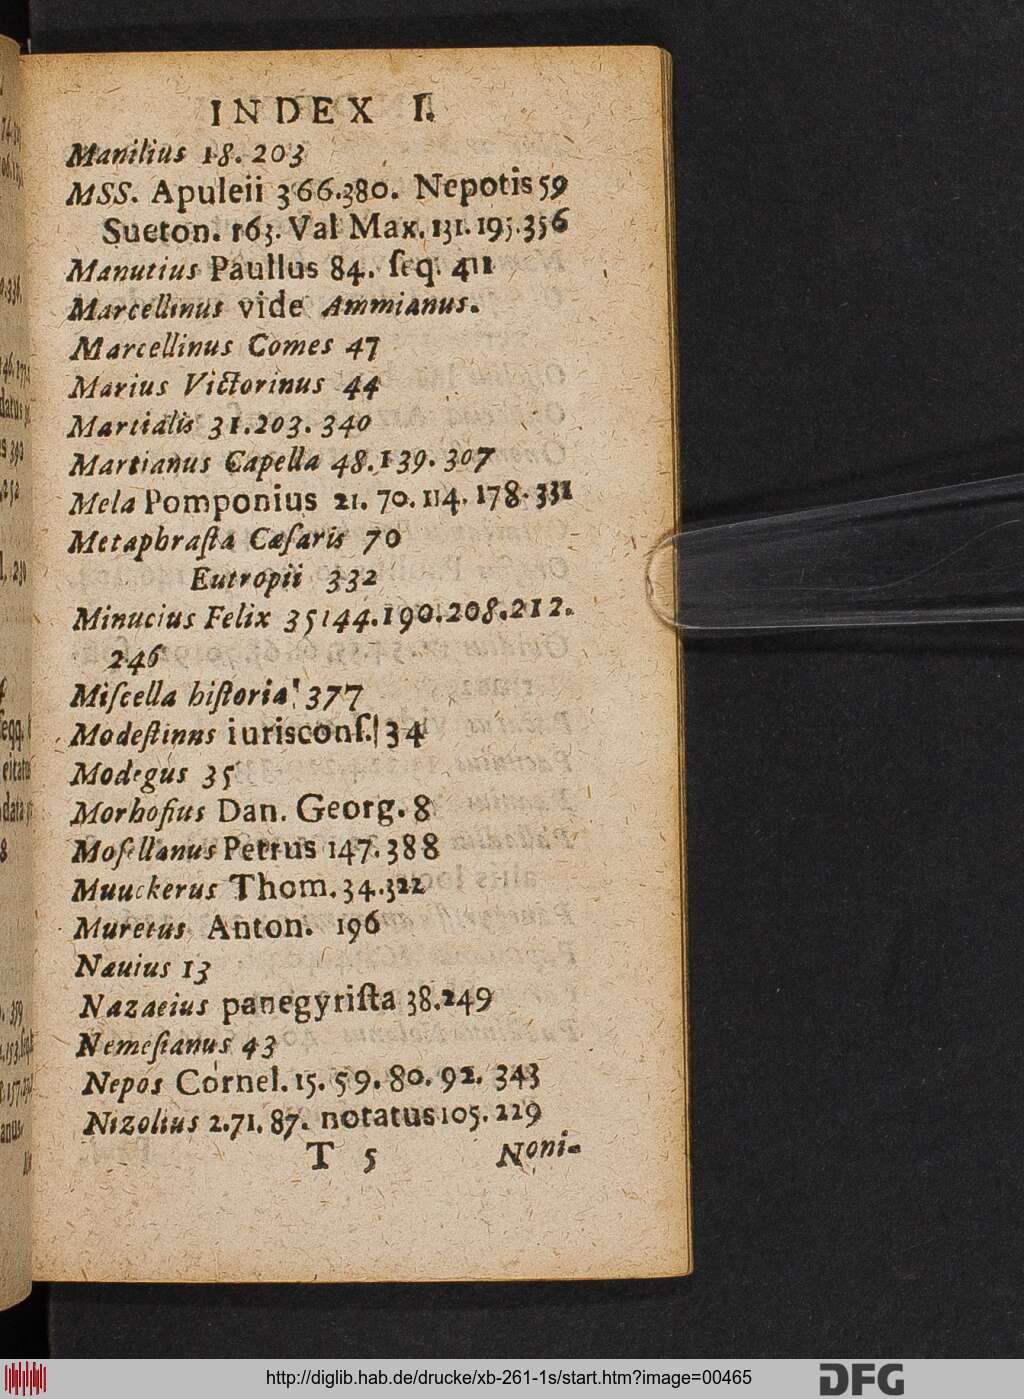 INDEX I.
Manilius 18. 203
MSS. Apuleii 366.380. Nepotis 59
Sueton. 163. Val Max. 131. 195.356
Manutius Paullus 84. ſeq. 411
Marcellinus vide Ammianus.
Marcellinus Comes 47
Marius Victorinus 44
Martialis 31.203. 340
Martianus Capella 48.139. 307
Mela Pomponius 21. 70. 114. 178. 331
Metaphraſta Cæſaris 70
Eutropii 332
Minucius Felix 35 144.190.208.212.
246
Miſcella hiſtoria 377
Modeſtinns iurisconſ. 34
Modegus 35
Morhofius Dan. Georg. 8
Moſellanus Petrus 147. 388
Muuckerus Thom. 34.322
Muretus Anton. 196
Næuius 13
Nazaeius panegyriſta 38.249
Nemeſianus 43
Nepos Cornel. 15. 59. 80. 92. 343
Nizolius 2.71. 87. notatus 105. 229
T 5 Noni-
http://diglib.hab.de/drucke/xb-261-1s/start.htm?image=00465
DFG